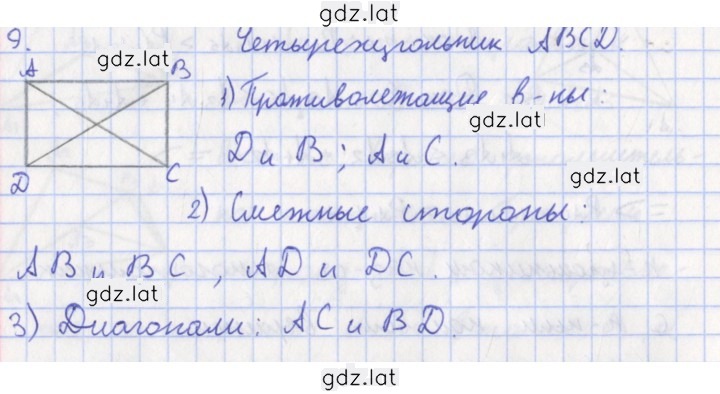 gdz.lat
9. Четырехугольник ABCD.
gdz.lat
A B
1) Противолежащие в-ны:
gdz.lat
D и B; A и C.
D C
gdz.lat
2) Смежные стороны:
AB и BC, AD и DC.
gdz.lat
3) Диагонали: AC и BD.
gdz.lat